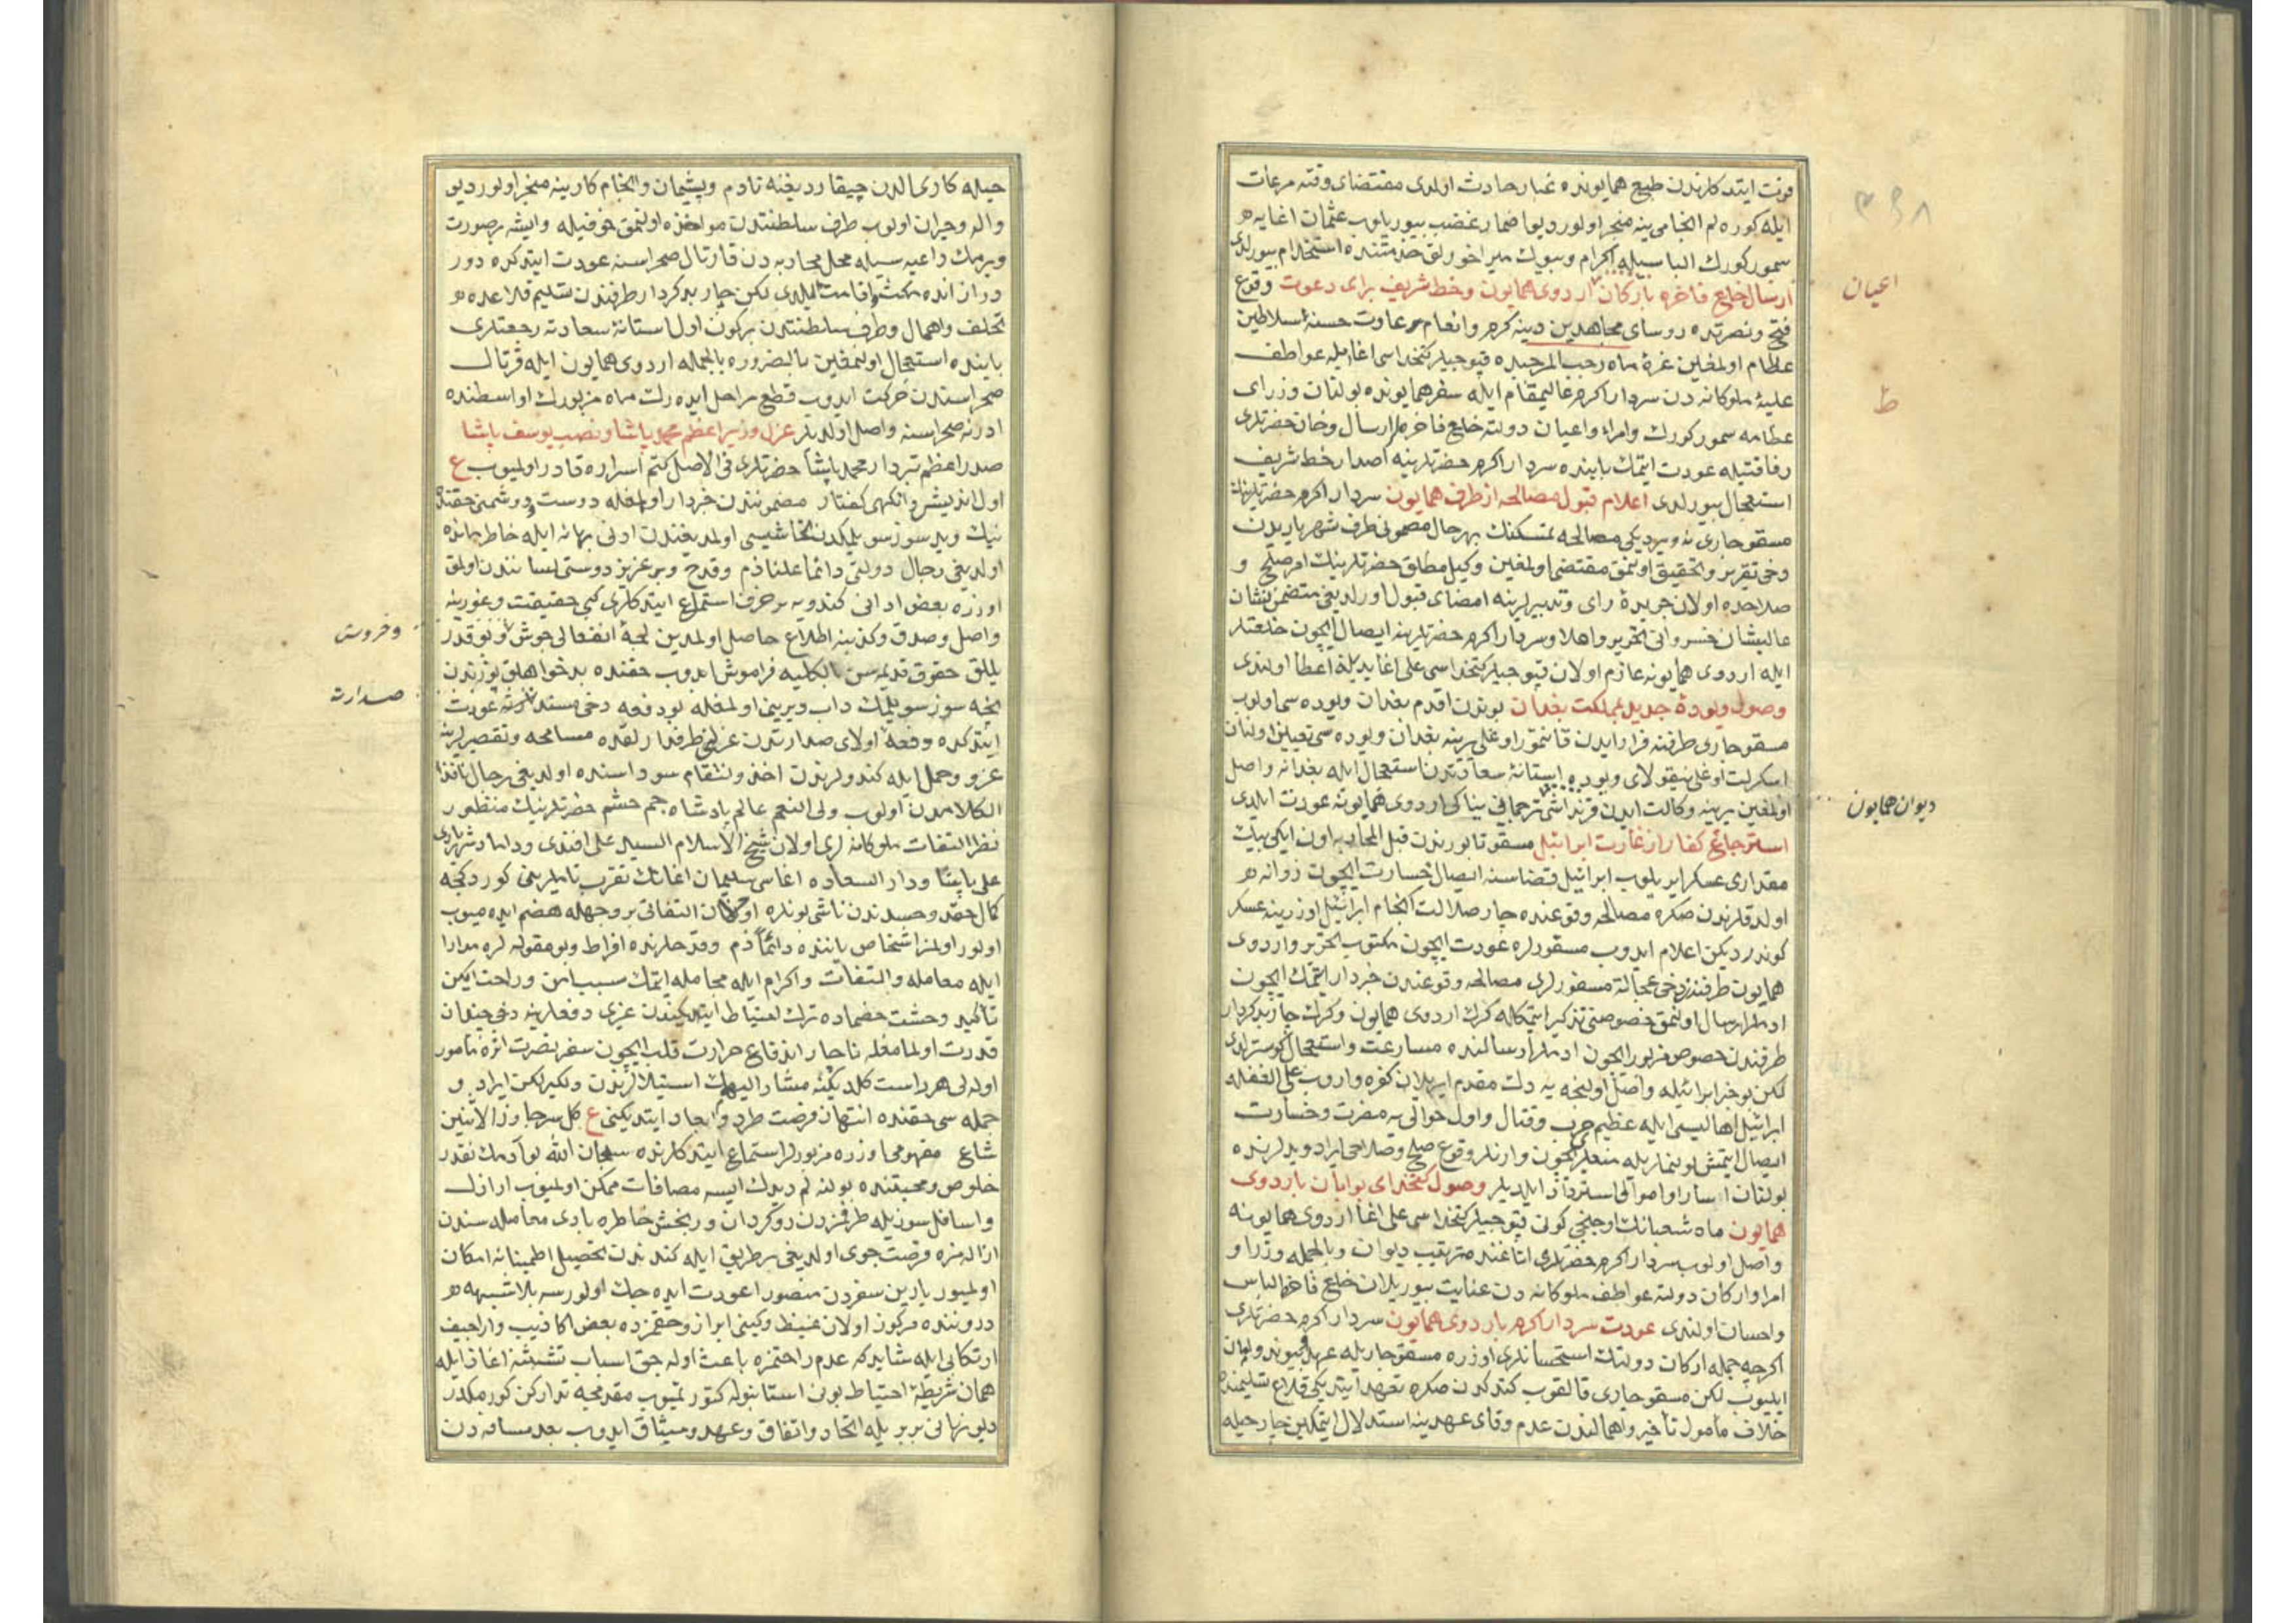 فوت ایتدکلرندن طبع همایونده غبار حادث اولدی مقتضای وقته مرعات
ایله کوره لم انجامی نیه منجر اولور دیو اضمار غضب بیوریلوب عثمان اغایه
سمور کورك الباسیله اکرام وبیوك میراخورلق خدمتنده استخدام بیورلدی
ارسال خلع فاخره بارکان اردوی همایون وخط شریف برای دعوت وقوع
فتح ونصرتده روسای مجاهدین دینه کرم وانعام عادت حسنهٔ سلاطین
عظام اولمغین غرهٔ ماه رجب المرجبده قپوجیلر کتخداسی اغا ایله عواطف
علیهٔ ملوکانه دن سردار اکرم عالیمقام ایله سفر همایونده بولنان وزرای
عظامه سمور کورك وامرا واعیان دولته خلع فاخره لر ارسال وخان حضرتلری
رفاقتیله عودت ایتمك بابنده سردار اکرم حضرتلرینه اصدار خط شریف
استعجال بیورلدی اعلام قبول مصالحه از طرف همایون سردار اکرم حضرتلرینك
مسقو چاری نه ویردیکی مصالحه تمسکنك بهرحال مضمونی طرف شهریاریدن
دخی تقریر وتحقیق اولنمق مقتضا اولمغین وکیل مطلق حضرتلرینك امر صلح و
صلاحده اولان جریدهٔ رای وتدبیرلرینه امضای قبول اورلدیغی متضمن نشان
عالیشان خسروانی تحریر واهلا وسردار اکرم حضرتلرینه ایصال ایچون خلعتلر
ایله اردوی همایونه عازم اولان قپوجیلر کتخداسی علی اغا یدیله اعطا اولندی
وصول ویودهٔ جدید بمملکت بغدان بوندن اقدم بغدان ویوده سی اولوب
مسقو چاری طرفنه فرار ایدن قانتمور اوغلی یرینه بغدان ویوده سی تعیین اولنان
اسکرلت اوغلی نیقولای ویوده استانهٔ سعادتدن استعجال ایله بغدانه واصل
اولمغین یرینه وکالت ایدن قرنداشی ترجمانی یناکی اردوی همایونه عودت ایلدی
استرجاع کفار از غارت ابرائیل مسقو تابورندن قبل المحاربه اون ایکی بیك
مقداری عسکر ایریلوب ابرائیل قضاسنه ایصال خسارت ایچون روانه
اولدقلرندن صکره مصالحه وقوعنده چار ضلالت انجام ابرائیل اوزرینه عسکر
کوندردیکن اعلام ایدوب مسقولره عودت ایچون مکتوب تحریر واردوی
همایون طرفندن دخی عجالة مسقورلری مصالحه وقوعندن خبردار ایتمك ایچون
ادملر ارسال اولنمق خصوصنی تذکیر ایتمکله کرك اردوی همایون وکرك چار بدکردار
طرفندن خصوص مزبور ایچون ادملر ارسالنده مسارعت واستعجال کوستردی
لکن بو خبر ابرائیله واصل اولنجه یه دك مقدم ایریلان کفره واروب علی الغفله
ابرائیل اهالیسی ایله عظیم حرب وقتال واول حوالی یه مضرت وخسارت
ایصال ایتمش بولنمالریله وقوع صلح وصلاحی ایراد ویدلرنده
بولنان اسارا واموالی استرداد ایلدیلر وصول کتخدای بوابان باردوی
همایون ماه شعبانك اوچنجی کونی قپوجیلر کتخداسی علی اغا اردوی همایونه
واصل اولوب سردار اکرم حضرتلری اتاغنده ترتیب دیوان وبالجمله وزرا و
امرا وارکان دولته عواطف ملوکانه دن عنایت بیوریلان خلع فاخره الباس
واحسان اولندی عودت سردار اکرم باردوی همایون سردار اکرم حضرتلری
اکرچه جمله ارکان دولتك استحسانلری اوزره مسقو چاریله عهد وپیوند ومان
ایلیوب لکن مسقو چاری قالقوب کتدکدن صکره تعهد ایتدیکی قلاع تسلیمنده
خلاف مأمول تأخیر واهمالندن عدم وفای عهدینه استدلال ایتمکین چار حیله
اعیان
ط
دیوان همایون
۳۹۸
حیله کاری الدن چیقاردیغنه نادم وپشیمان وانجام کار نیه منجر اولور دیو
واله وحیران اولوب طرف سلطنتدن مواخذه اولنمق خوفیله وایشه بر صورت
ویرمك داعیه سیله محل محاربه دن قارتال صحراسنه عودت ایتدکده دور
دراز انده مکث واقامت ایلدی لکن چار بدکردار طرفندن تسلیم قلاعده
تخلف واهمال وطرف سلطنتدن برکون اول استانهٔ سعادته رجعتلری
بابنده استعجال اولنمغین بالضروره بالجمله اردوی همایون ایله قرتال
صحراسندن حرکت ایدوب قطع مراحل ایده رك ماه مزبورك اواسطنده
ادرنه صحراسنه واصل اولدیلر عزل وزیر اعظم محمد پاشا ونصب یوسف پاشا
صدر اعظم سردار محمد پاشا حضرتلری فی الاصل کتم اسراره قادر اولمیوب ع
اول اندیشه وانکهی کفتار مضموننندن خبردار اولمغله دوست ودوشمن حقنده
نیك وبد سوز سویلمکدن تحاشیسی اولمدیغندن ادنی بهانه ایله خاطرمانده
اولدیغی رجال دولتی دائما علنا ذم وقدح وبر عزیز دوستی لسانندن اولمق
اوزره بعض ادانی کندویه بر حرف استماع ایتدکلری کبی حقیقت وغورینه
واصل وصدق وکذبنه اطلاع حاصل اولمدین لجهٔ انفعالی جوش وبوقدر
ییللق حقوق قدیمه سن بالکلیه فراموش ایدوب حقنده بدخواهلق یوزندن
نجه سوز سویلمك داب ودیرینی اولمغله بو دفعه دخی مسند عزته عودت
ایتدکده دفعهٔ اولای صدارتدن عزلنی طرفدارلقده مسامحه وتقصیرلرینه
عزو وحمل ایله کندولرندن اخذ وانتقام سوداسنده اولدیغی رجال نافذ
الکلامدن اولوب ولی النعم عالم پادشاه جم حشم حضرتلرینك منظور
نظر التفات ملوکانه لری اولان شیخ الاسلام السید علی افندی وداماد شهریاری
علی پاشا ودار السعاده اغاسی سلیمان اغانك تقرب تاملرینی کوردکجه
کمال حقد وحسدندن ناشی بونلره اولان التفاتی بر وجهله هضم ایده میوب
اولور اولمز اشخاص یاننده دائما ذم وقدحلرنده افراط وبو مقوله لره مدارا
ایله معامله والتفات واکرام ایله مجامله ایتمك سبب امن وراحت ایکن
تاکید وحشت خصماده ترك احتیاط ایتدیکیندن عزلی دفعلرینه دخی چندان
قدرت اولمامغله ناچار اندفاع حرارت قلب ایچون سفر نصرت اثره مامور
اوله لی هر راست کلدیکنه مشار الیهمك استیلالرندن دلکیرلکن ایراد و
جمله سی حقنده انتهاز فرصت طرد وابعاد ایتدیکینی ع کل سر جاوز الاثنین
شاع مفهومی اوزره مزبورلر استماع ایتدکلرنده سبحان الله بو آدمك نقدر
خلوص ومحبتنده بولنه لم دیدك ایسه مصافات ممکن اولمیوب اراذل
واسافل سوزیله طرفمزدن روکردان ورنجش خاطره بادی معامله سندن
ازاله مزه فرصت جوی اولدیغی بر طریق ایله کندندن تحصیل اطمینانه امکان
اولمیور یارین سفردن منصورا عودت ایده جك اولورسه بلا شبهه
درونند مرکوز اولان غیظ وکینی ابراز وحقمزده بعض اکاذیب واراجیف
ارتکابی ایله شاید که عدم راحتمزه باعث اوله جق اسباب تشبثنه اغاز ایله
همان شریطهٔ احتیاط بونی استانبوله کتورتمیوب مقدمجه تدارکن کورمکدر
دیو نهانی بربریله اتحاد واتفاق وعهد ومیثاق ایدوب بعد مسافه دن
وخروش
صدارت